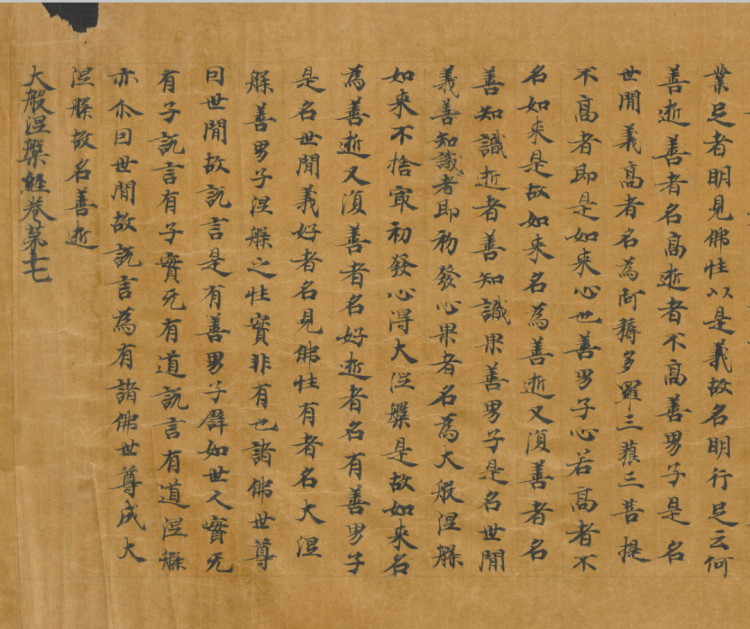 業足者明見佛性以是義故名明行足云何
善逝善者名高逝者不高善男子是名
世間義高者名為阿耨多羅三藐三菩提
不高者即是如來心也善男子心若高者不
名如來是故如來名為善逝又復善者名
善知識逝者善知識果善男子是名世間
義善知識者即初發心果者名為大般涅槃
如來不捨寂初發心得大涅槃是故如來名
為善逝又復善者名好逝者名有善男子
是名世間義好者名見佛性有者名大涅
槃善男子涅槃之性實非有也諸佛世尊
因世間故說言是有善男子譬如世人實无
有子說言有子實无有道說言有道涅槃
亦尒因世間故說言為有諸佛世尊成大
涅槃故名善逝
大般涅槃經卷第十七